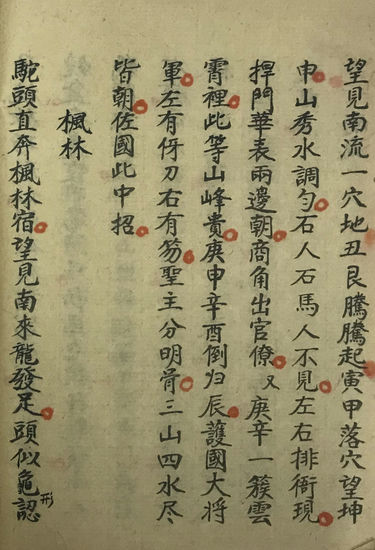 望見南流一穴地丑艮騰騰起寅甲落穴望坤
申山秀水調勻石人石馬人不見左右排衙現
捍門華表兩邊朝商角出官僚又庚辛一簇雲
霄裡此等山峰貴庚申辛酉倒归辰護國大將
軍左有伢刀右有笏聖主分明骨三山四水尽
皆朝佐國此中招
楓林
駝頭直奔楓林宿望見南來龍發足頭似龜形認